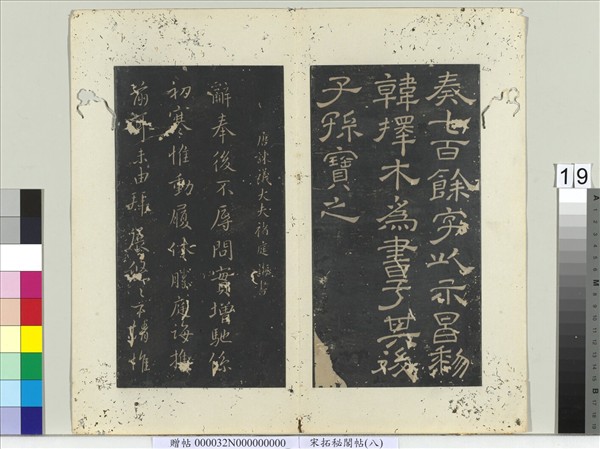 奏七百餘字以示昌黎
韓擇木為書予其後
子孫寶之
唐諫議大夫褚庭誨書
辭奉後不辱問實增馳係
初寒惟動履休勝庭誨推
未由拜情惟
19
贈帖 000032N000000000_
宋拓秘閣帖(八)